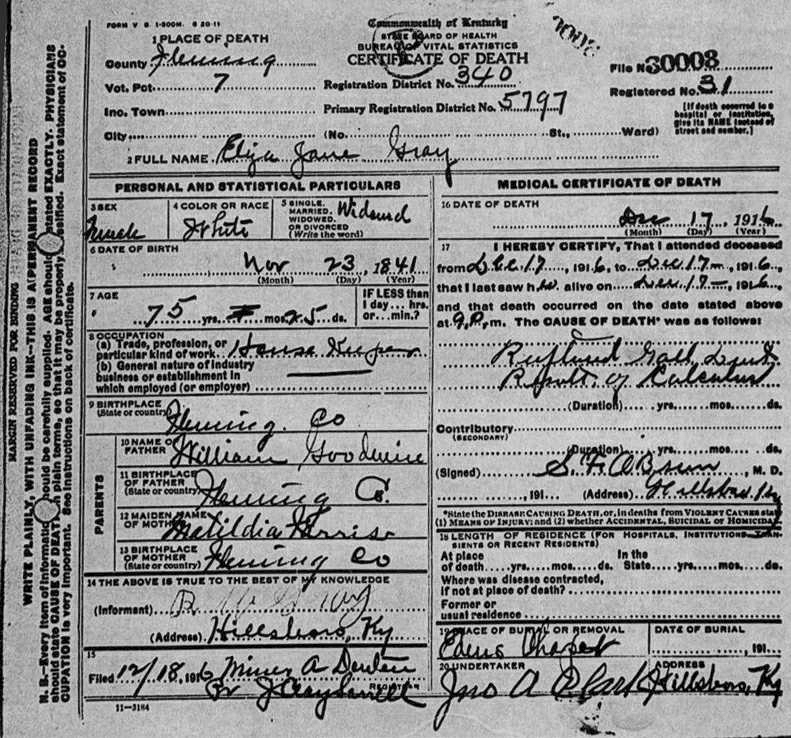 FORM V S. 1-500M. 6 20-11
Commonwealth of Kentucky
STATE BOARD OF HEALTH
BUREAU OF VITAL STATISTICS
CERTIFICATE OF DEATH
1 PLACE OF DEATH
County Fleming
Vot. Pct 7
Inc. Town
City (No. St., Ward)
Registration District No. 340
Primary Registration District No. 5797
File No. 30008
Registered No. 31
[If death occurred in a hospital or institution, give its NAME instead of street and number.]
2 FULL NAME Eliza Jane Gray
PERSONAL AND STATISTICAL PARTICULARS
3 SEX
Female
4 COLOR OR RACE
White
5 SINGLE, MARRIED, WIDOWED, OR DIVORCED (Write the word) Widowed
6 DATE OF BIRTH
Nov 23, 1841
(Month) (Day) (Year)
7 AGE
75 yrs. mos. 25 ds.
IF LESS than 1 day... hrs. or... min.?
8 OCCUPATION
(a) Trade, profession, or particular kind of work House Keeper
(b) General nature of industry business or establishment in which employed (or employer)
9 BIRTHPLACE
(State or country) Fleming Co
PARENTS
10 NAME OF FATHER William
11 BIRTHPLACE OF FATHER (State or country) Fleming Co.
12 MAIDEN NAME OF MOTHER Matildia
13 BIRTHPLACE OF MOTHER (State or country) Fleming Co
14 THE ABOVE IS TRUE TO THE BEST OF MY KNOWLEDGE
(Informant) Gray
(Address) Hillsboro, Ky
15
Filed 12/18, 1916 Miner A Denton
REGISTRAR
11-3184
MEDICAL CERTIFICATE OF DEATH
16 DATE OF DEATH
Dec 17, 1916
(Month) (Day) (Year)
17 I HEREBY CERTIFY, That I attended deceased
from Dec 17, 1916, to Dec 17, 1916,
that I last saw her alive on Dec 17, 1916,
and that death occurred on the date stated above
at 9 P. m. The CAUSE OF DEATH* was as follows:
Gall Duct
Result of Calculus
(Duration) yrs. mos. ds.
Contributory
(SECONDARY)
(Duration) yrs. mos. ds.
(Signed) M. D.
191 (Address) Hillsboro, Ky
*State the DISEASE CAUSING DEATH, or, in deaths from VIOLENT CAUSES state
(1) MEANS OF INJURY; and (2) whether ACCIDENTAL, SUICIDAL or HOMICIDAL
18 LENGTH OF RESIDENCE (FOR HOSPITALS, INSTITUTIONS, TRANSIENTS OR RECENT RESIDENTS)
At place of death yrs. mos. ds. In the State yrs. mos. ds.
Where was disease contracted, if not at place of death?
Former or usual residence
19 PLACE OF BURIAL OR REMOVAL
Chapel
DATE OF BURIAL
191
20 UNDERTAKER
Jno A Clark
ADDRESS
Hillsboro, Ky
MARGIN RESERVED FOR BINDING
WRITE PLAINLY, WITH UNFADING INK—THIS IS A PERMANENT RECORD
N. B.—Every item of information should be carefully supplied. AGE should be stated EXACTLY. PHYSICIANS
should state CAUSE OF DEATH in plain terms, so that it may be properly classified. Exact statement of OC-
CUPATION is very important. See instructions on back of certificate.